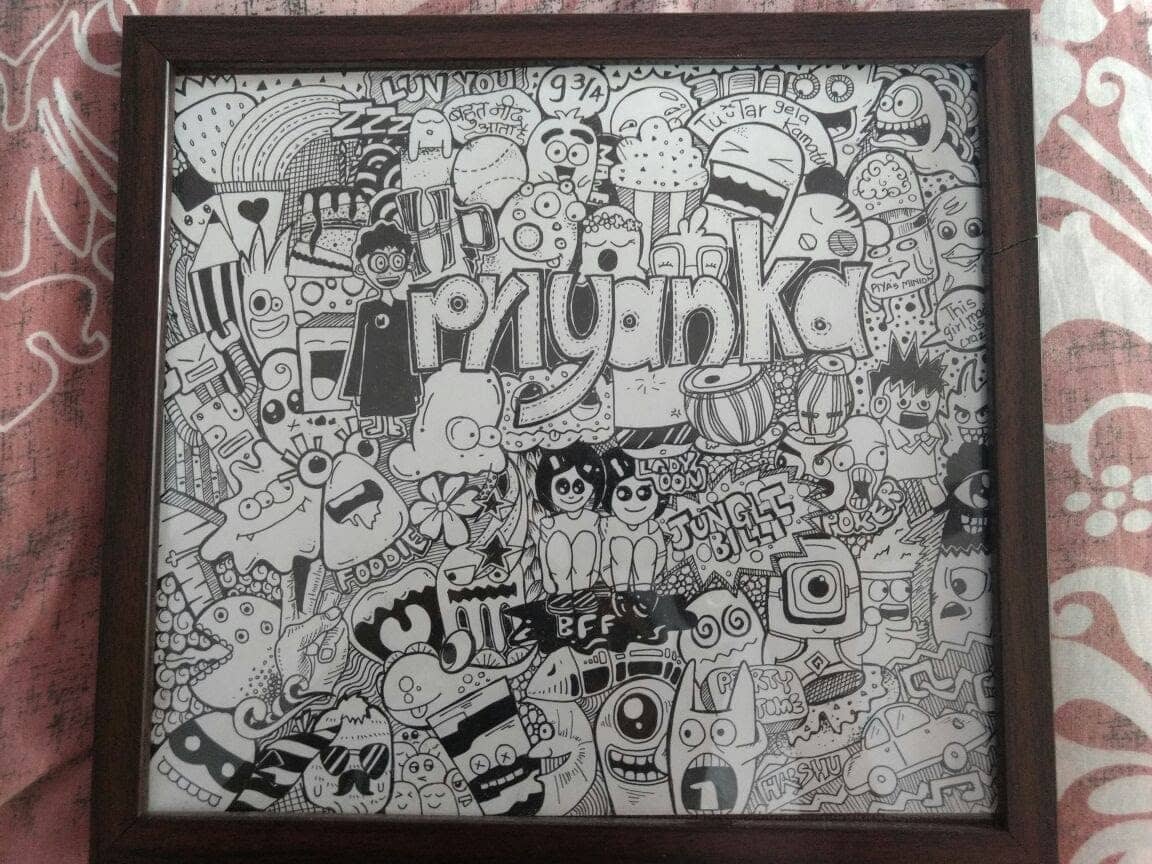 LUV YOU!
9 3/4
ZZZ
बहुत नींद
आता है
Tu Tar gela
kamatu
Priyanka
PIYA'S MINION
This
girl is
LADY
DON
JUNGLI
BILLI
POKER
FOODIE
BFF
PARTY
TIME
HARSHU